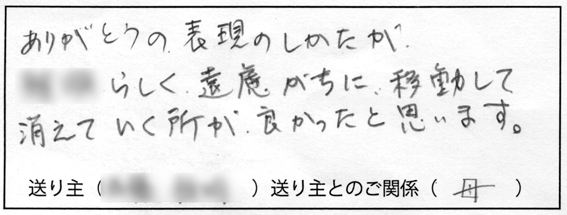 ありがとうの、表現のしかたが、
らしく、遠慮がちに、移動して
消えていく所が、良かったと思います。
送り主( )送り主とのご関係( 母 )